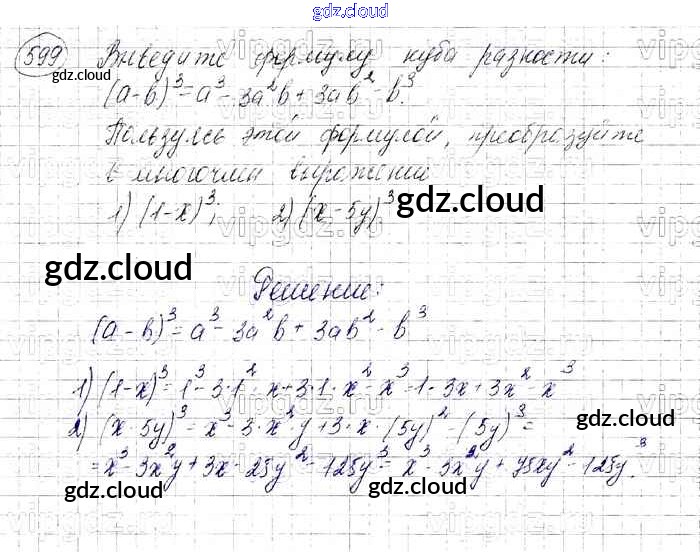 gdz.cloud
599 Выведите формулу куба разности:
gdz.cloud
(a-b)³=a³-3a²b+3ab²-b³.
Пользуясь этой формулой, преобразуйте
в многочлен выражение
1) (1-x)³; 2) (x-5y)³
gdz.cloud
gdz.cloud
Решение:
(a-b)³=a³-3a²b+3ab²-b³
1) (1-x)³=1³-3·1²·x+3·1·x²-x³=1-3x+3x²-x³
2) (x-5y)³=x³-3·x²y+3·x·(5y)²-(5y)³=
gdz.cloud
=x³-3x²y+3x·25y²-125y³=x³-3x²y+75xy²-125y³.
gdz.cloud
gdz.cloud